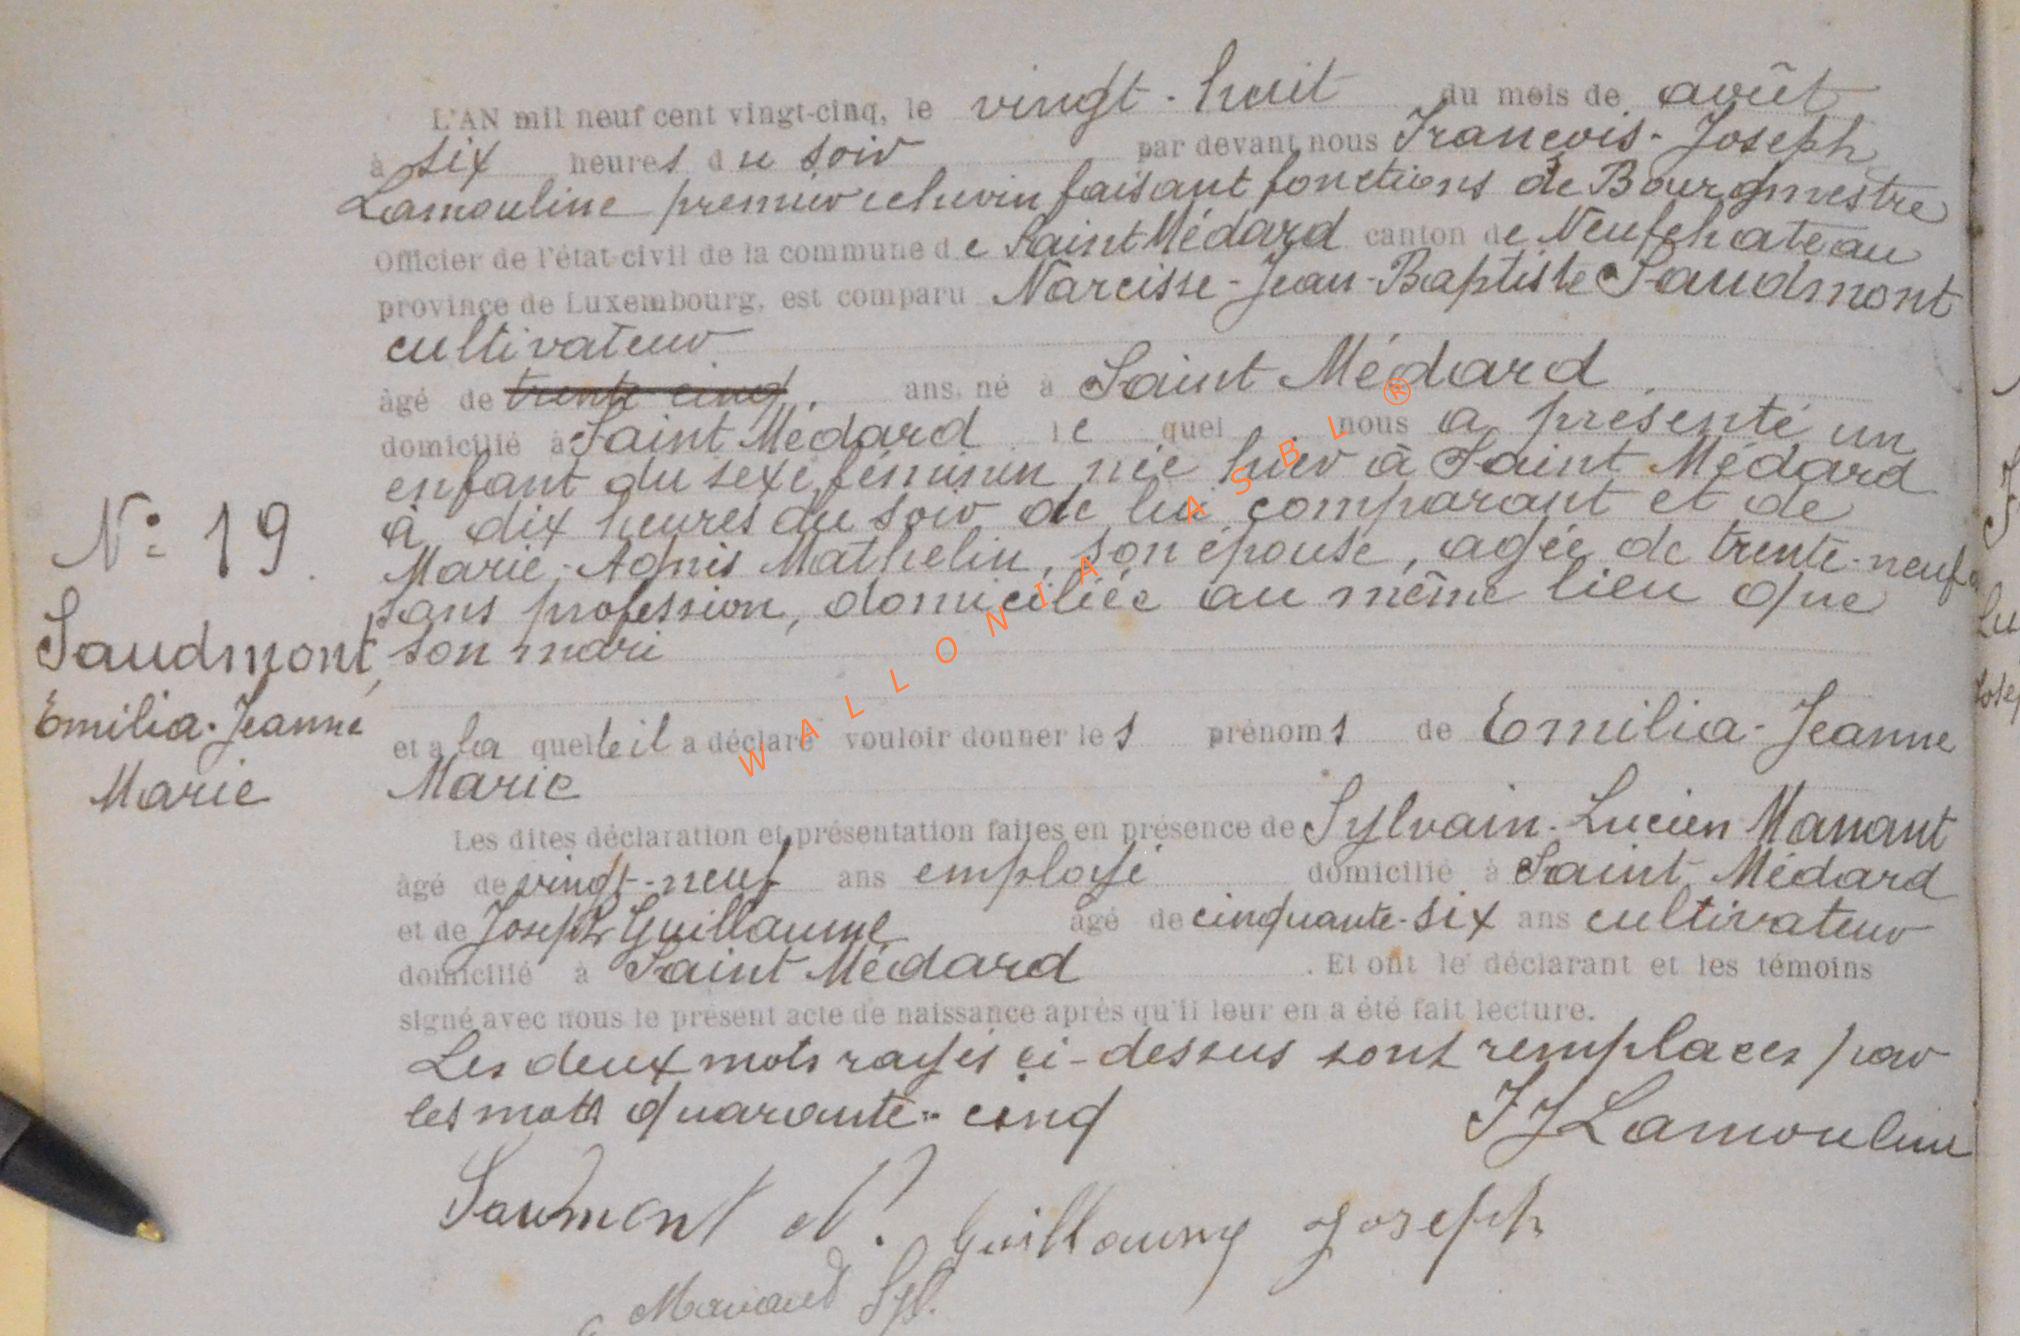 L'AN mil neuf cent vingt-cinq, le vingt-huit du mois de août
à six heures du soir par devant nous François-Joseph
Lamouline premier echevin faisant fonctions de Bourgmestre
Officier de l'état-civil de la commune de Saint Médard canton de Neufchateau
province de Luxembourg, est comparu Narcisse-Jean-Baptiste Saudmont
cultivateur
âgé de trente cinq. ans, né à Saint Médard
domicilié à Saint Médard lequel nous a présenté un
enfant du sexe féminin née hier à Saint Médard
à dix heures du soir de lui comparant et de
Marie-Agnis Mathelin, son épouse, agée de trente-neuf
sans profession, domiciliée au même lieu que
son mari
N° 19.
Saudmont,
Emilia-Jeanne
Marie
et a la quelle il a déclaré vouloir donner les prénoms de Emilia-Jeanne
Marie
Les dites déclaration et présentation faites en présence de Sylvain-Lucien Manant
âgé de vingt-neuf ans employé domicilié à Saint Médard
et de Joseph Guillaume âgé de cinquante-six ans cultivateur
domicilié à Saint Médard. Et ont le déclarant et les témoins
signé avec nous le présent acte de naissance après qu'il leur en a été fait lecture.
Les deux mots rayés ci-dessus sont remplaces par
les mots quarante-cinq
FJ Lamouline
Saudmont N. Guillaume Joseph
Syl.
WALLONIA ASBL ®